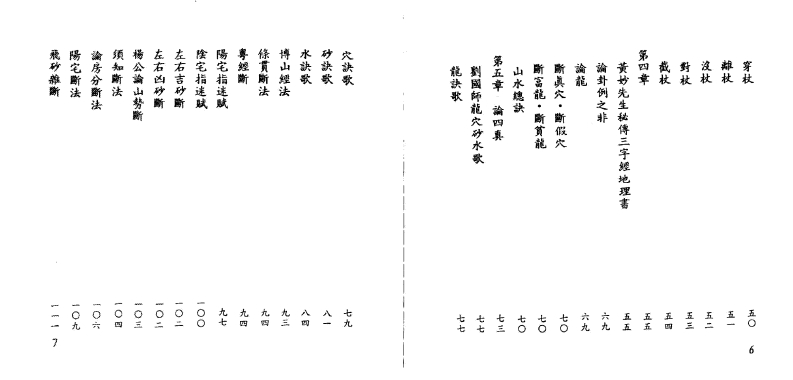 穿杖 五〇
離杖 五一
沒杖 五二
對杖 五三
截杖 五四
第四章 五五
黃妙先生秘傳三字經地理書 五五
論卦例之非 六九
論龍 六九
斷眞穴・斷假穴 七〇
斷富龍・斷貧龍 七〇
山水總訣 七〇
第五章 論四真 七三
劉國師龍穴砂水歌 七七
龍訣歌 七七
6
穴訣歌 七九
砂訣歌 八一
水訣歌 八四
博山經法 九三
條貫斷法 九四
粵經斷 九四
陽宅指迷賦 九七
陰宅指迷賦 一〇〇
左右吉砂斷 一〇二
左右凶砂斷 一〇二
楊公論山勢斷 一〇三
須知斷法 一〇四
論房分斷法 一〇六
陽宅斷法 一〇九
飛砂雜斷 一一一
7